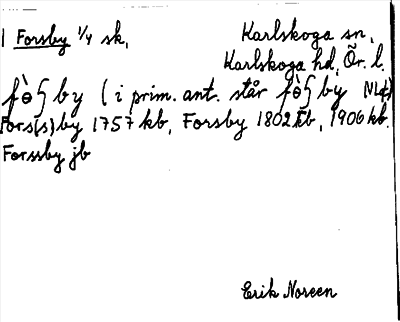 1 Forsby 1/4 sk, Karlskoga sn,
Karlskoga hd, Ör. l.
fɵ̀ʂby (i prim. ant. står fɵ̀ʂby
Fors(s)by 1757 kb, Forsby 1802 kb, 1906 kb.
Forssby jb
Erik Noreen